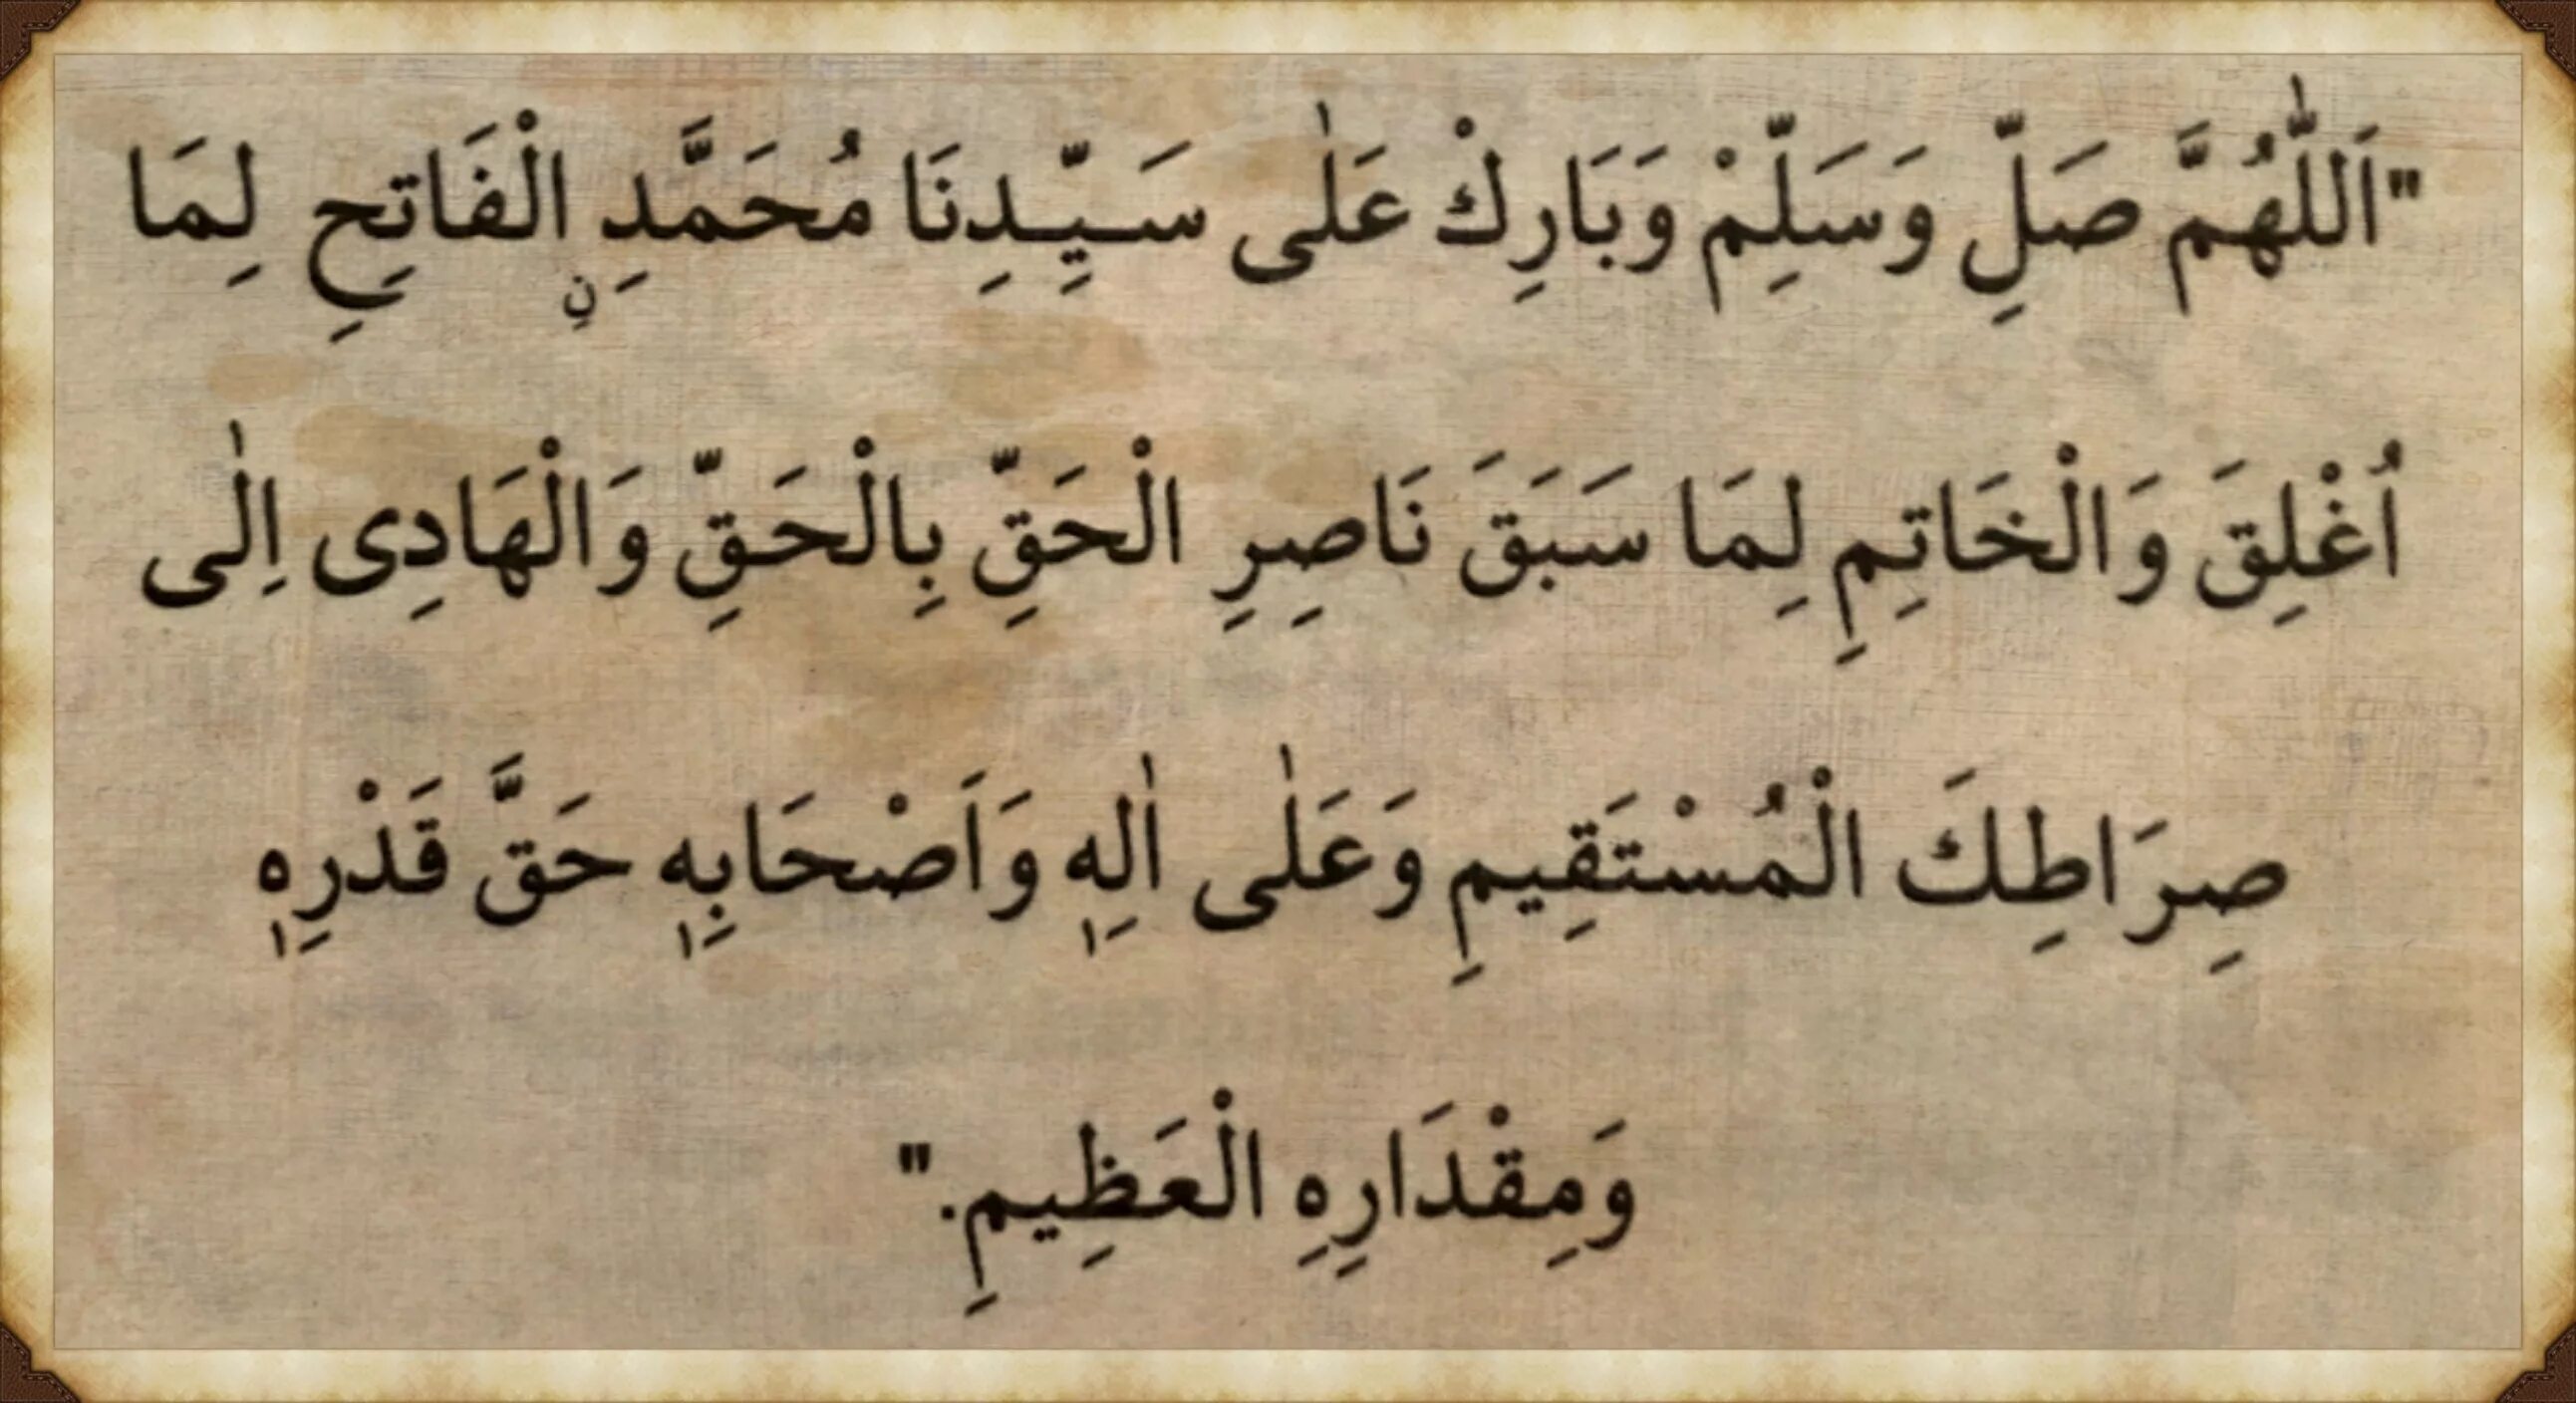 "اَللّٰهُمَّ صَلِّ وَسَلِّمْ وَبَارِكْ عَلٰى سَـيِّـدِنَا مُحَمَّدِ نِ الْفَاتِحِ لِمَا
اُغْلِقَ وَالْخَاتِمِ لِمَا سَبَقَ نَاصِرِ الْحَقِّ بِالْحَقِّ وَالْهَادِى اِلٰى
صِرَاطِكَ الْمُسْتَقِيمِ وَعَلٰى اٰلِهٖ وَاَصْحَابِهٖ حَقَّ قَدْرِهٖ
وَمِقْدَارِهِ الْعَظِيمِ."